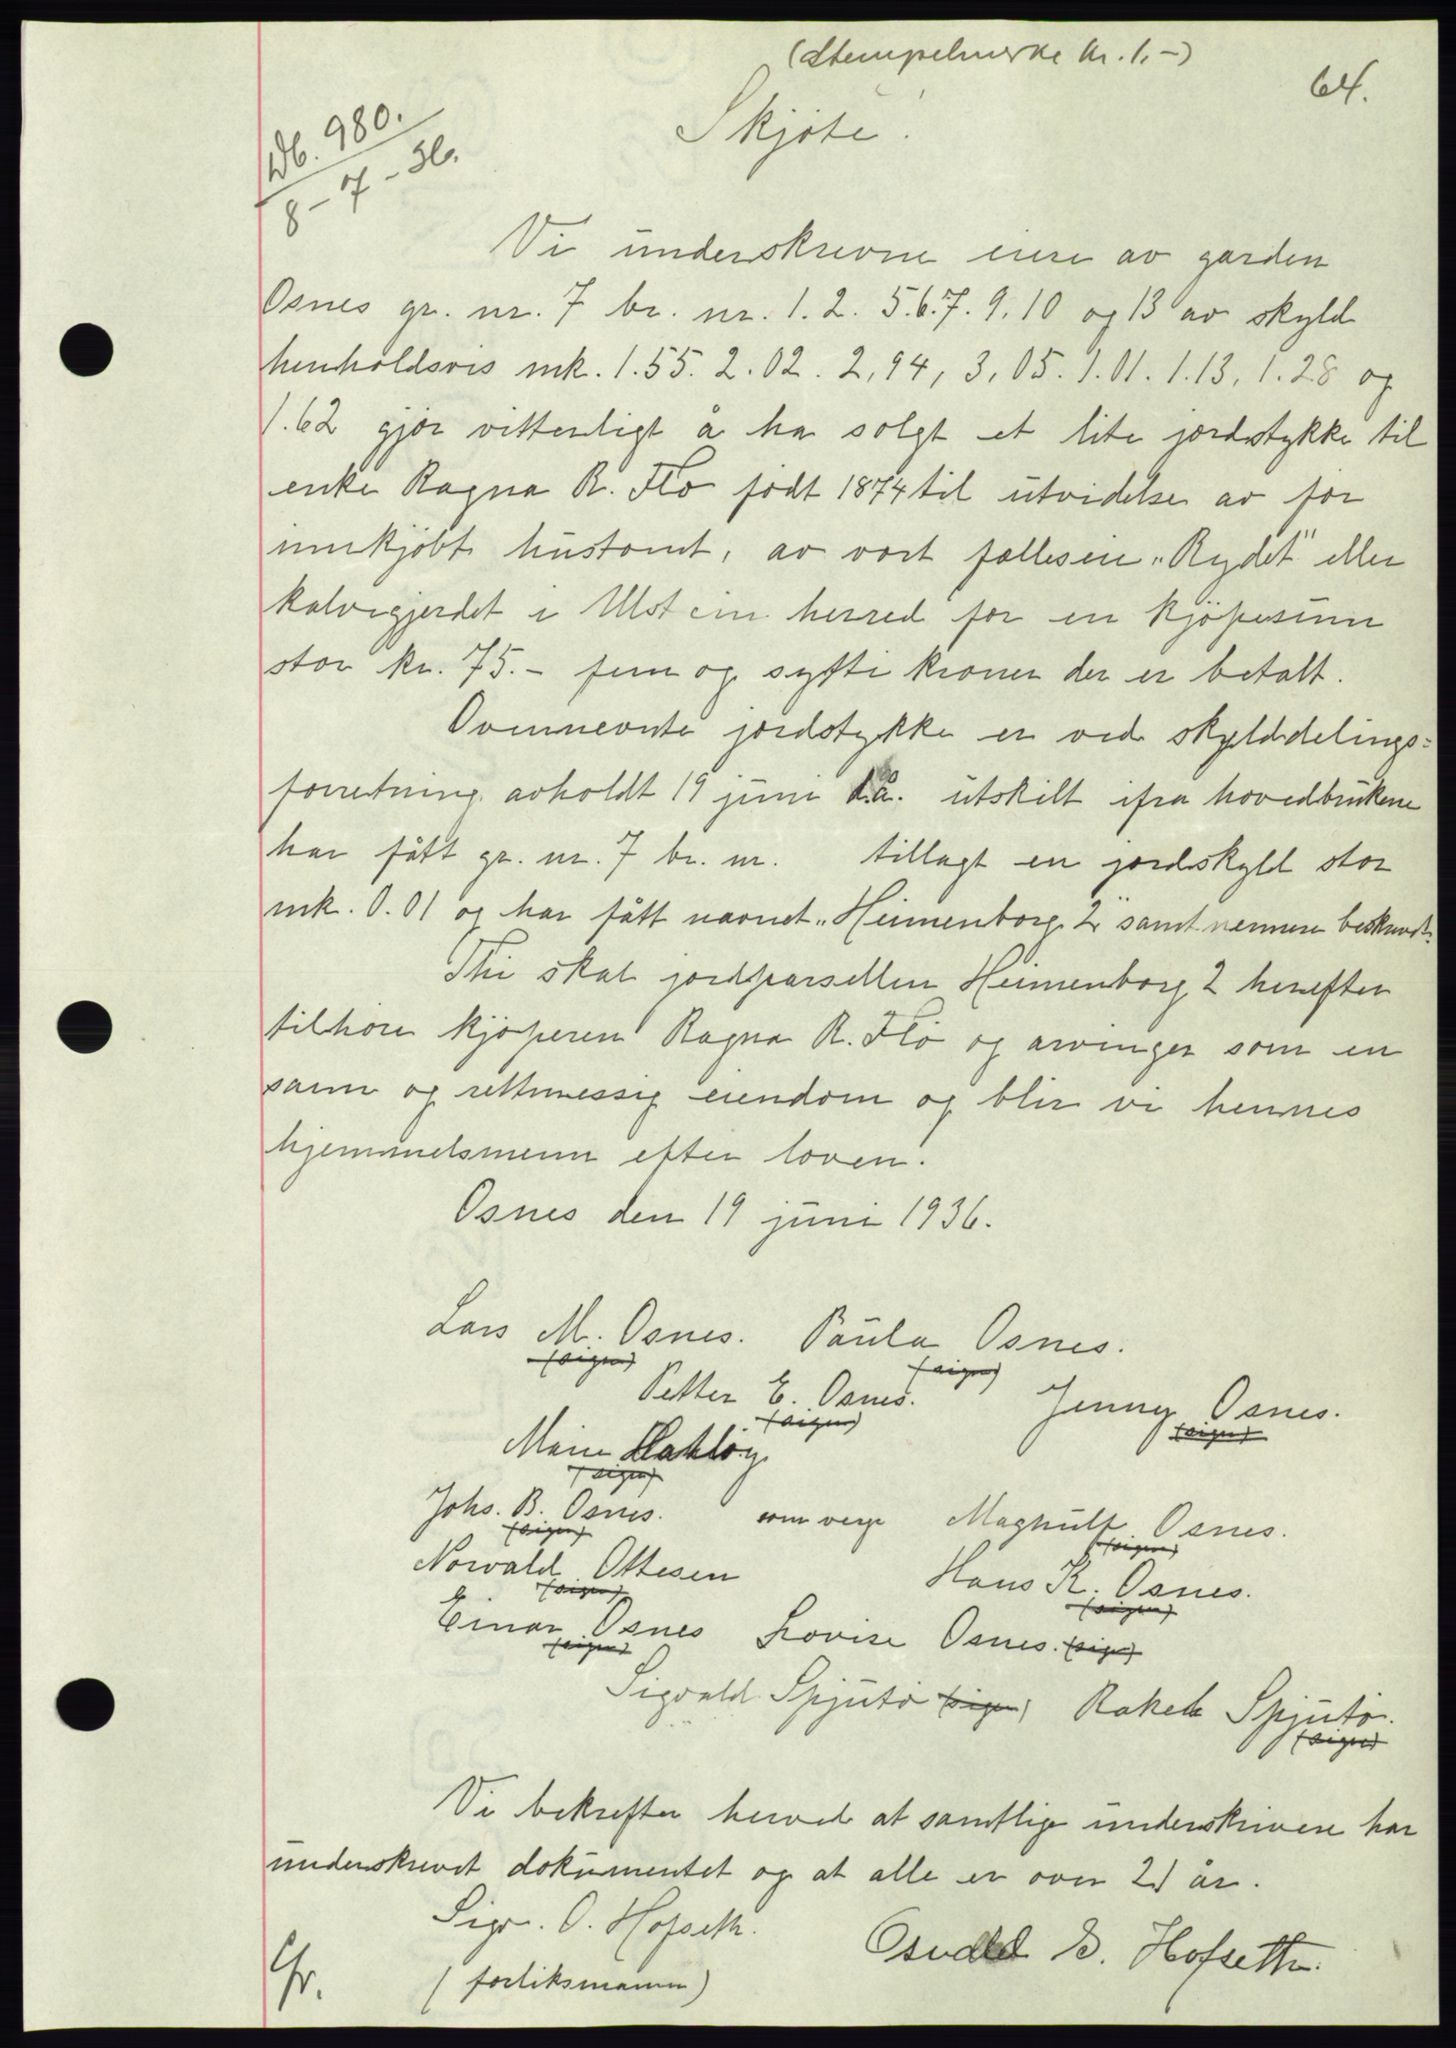 (Stempelmerke kr. 1.-)
64.
Skjøte.
Db. 980.
8-7-36.
Vi underskrevne eiere av garden
Osnes gr. nr. 7 br. nr. 1. 2. 5. 6. 7. 9. 10 og 13 av skyld
henholdsvis mk. 1.55. 2.02. 2,94, 3,05. 1.01. 1.13, 1.28 og
1.62 gjør vitterligt å ha solgt et lite jordstykke til
enke Ragna R. Flø født 1874 til utvidelse av før
innkjøbt hustomt, av vort felleseie „Rydet" eller
kalvegjerdet i Ulstein herred for en kjøpesum
stor kr. 75.- fem og sytti kroner der er betalt.
Ovennevnte jordstykke er ved skylddelings=
forretning avholdt 19 juni d.å. utskilt ifra hovedbrukene
har fått gr. nr. 7 br. nr. tillagt en jordskyld stor
mk. 0.01 og har fått navnet „Heimenborg 2" samt nermere beskrevet.
Thi skal jordparsellen Heimenborg 2 herefter
tilhøre kjøperen Ragna R. Flø og arvinger som en
sann og rettmessig eiendom og blir vi hennes
hjemmelsmenn efter loven.
Osnes den 19 juni 1936.
Lars M. Osnes. Paula Osnes.
(sign) (sign)
Petter E. Osnes. Jenny Osnes.
(sign) (sign)
Marie
(sign)
Johs. B. Osnes. som verge Magnulf Osnes.
(sign) (sign)
Norvald Ottesen Hans K. Osnes.
(sign) (sign)
Einar Osnes Lovise Osnes. (sign)
(sign)
Sigvald Spjutø (sign) Rakel Spjutø.
(sign)
Vi bekrefter herved at samtlige underskrivere har
underskrevet dokumentet og at alle er over 21 år.
Sigv. O. Hofseth. Osvald E. Hofseth.
(forliksmann)